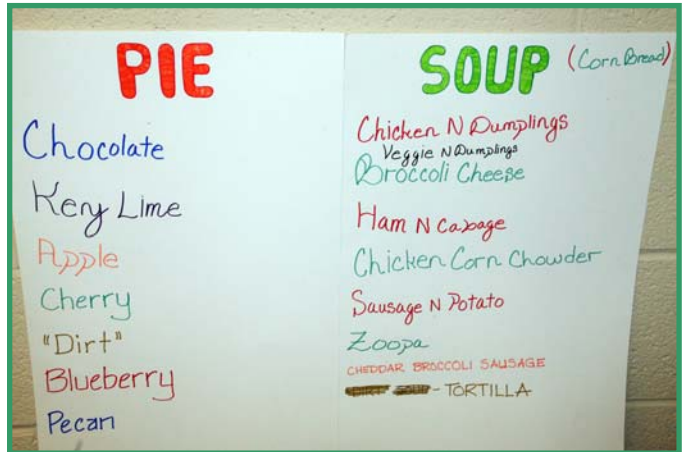 PIE
Chocolate
Kery Lime
Apple
Cherry
"Dirt"
Blueberry
Pecan
SOUP (Corn Bread)
Chicken N Dumplings
Veggie N Dumplings
Broccoli Cheese
Ham N Cabage
Chicken Corn Chowder
Sausage N Potato
Zoopa
CHEDDAR BROCCOLI SAUSAGE
- TORTILLA